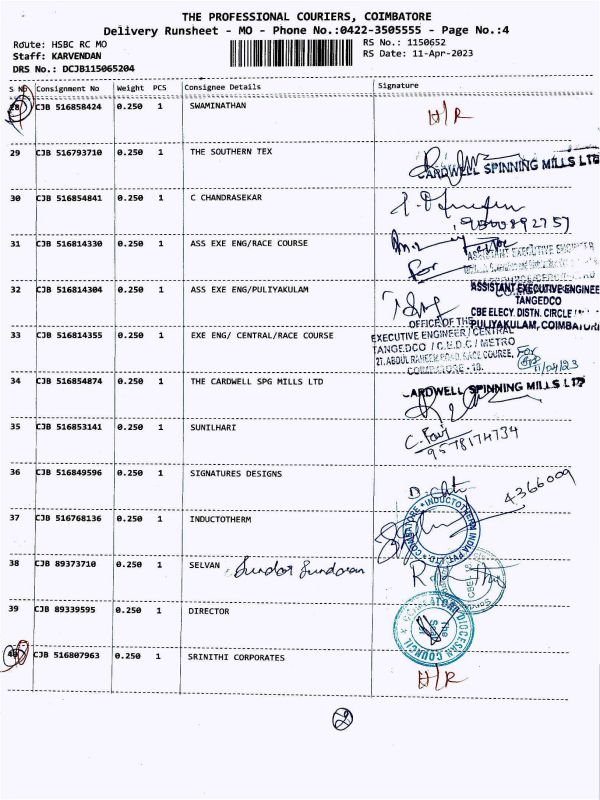 THE PROFESSIONAL COURIERS, COIMBATORE
Delivery Runsheet - MO - Phone No.:0422-3505555 - Page No.:4
Route: HSBC RC MO
RS No.: 1150652
Staff: KARVENDAN
RS Date: 11-Apr-2023
DRS No.: DCJB115065204
S NO Consignment No Weight PCS Consignee Details Signature
28 CJB 516858424 0.250 1 SWAMINATHAN H/R
29 CJB 516793710 0.250 1 THE SOUTHERN TEX
CARDWELL SPINNING MILLS LTD
30 CJB 516854841 0.250 1 C CHANDRASEKAR
31 CJB 516814330 0.250 1 ASS EXE ENG/RACE COURSE
For
ASSISTANT EXECUTIVE ENGINEER
32 CJB 516814304 0.250 1 ASS EXE ENG/PULIYAKULAM
ASSISTANT EXECUTIVE ENGINEE
TANGEDCO
CBE ELECY. DISTN. CIRCLE
PULIYAKULAM, COIMBATORE
33 CJB 516814355 0.250 1 EXE ENG/ CENTRAL/RACE COURSE
OFFICE OF THE
EXECUTIVE ENGINEER / CENTRAL
TANGEDCO / C.E.D.C / METRO
21, ABDUL RAHEEM ROAD, RACE COURSE,
COIMBATORE - 18.
For
11/04/23
34 CJB 516854874 0.250 1 THE CARDWELL SPG MILLS LTD
CARDWELL SPINNING MILLS LTD
35 CJB 516853141 0.250 1 SUNILHARI
9578174734
36 CJB 516849596 0.250 1 SIGNATURES DESIGNS
4366009
37 CJB 516768136 0.250 1 INDUCTOTHERM
INDUCTOTHERM INDIA PVT. LTD. COIMBATORE
38 CJB 89373710 0.250 1 SELVAN
39 CJB 89339595 0.250 1 DIRECTOR
COIMBATORE DIOCESAN COUNCIL
40 CJB 516807963 0.250 1 SRINITHI CORPORATES H/R